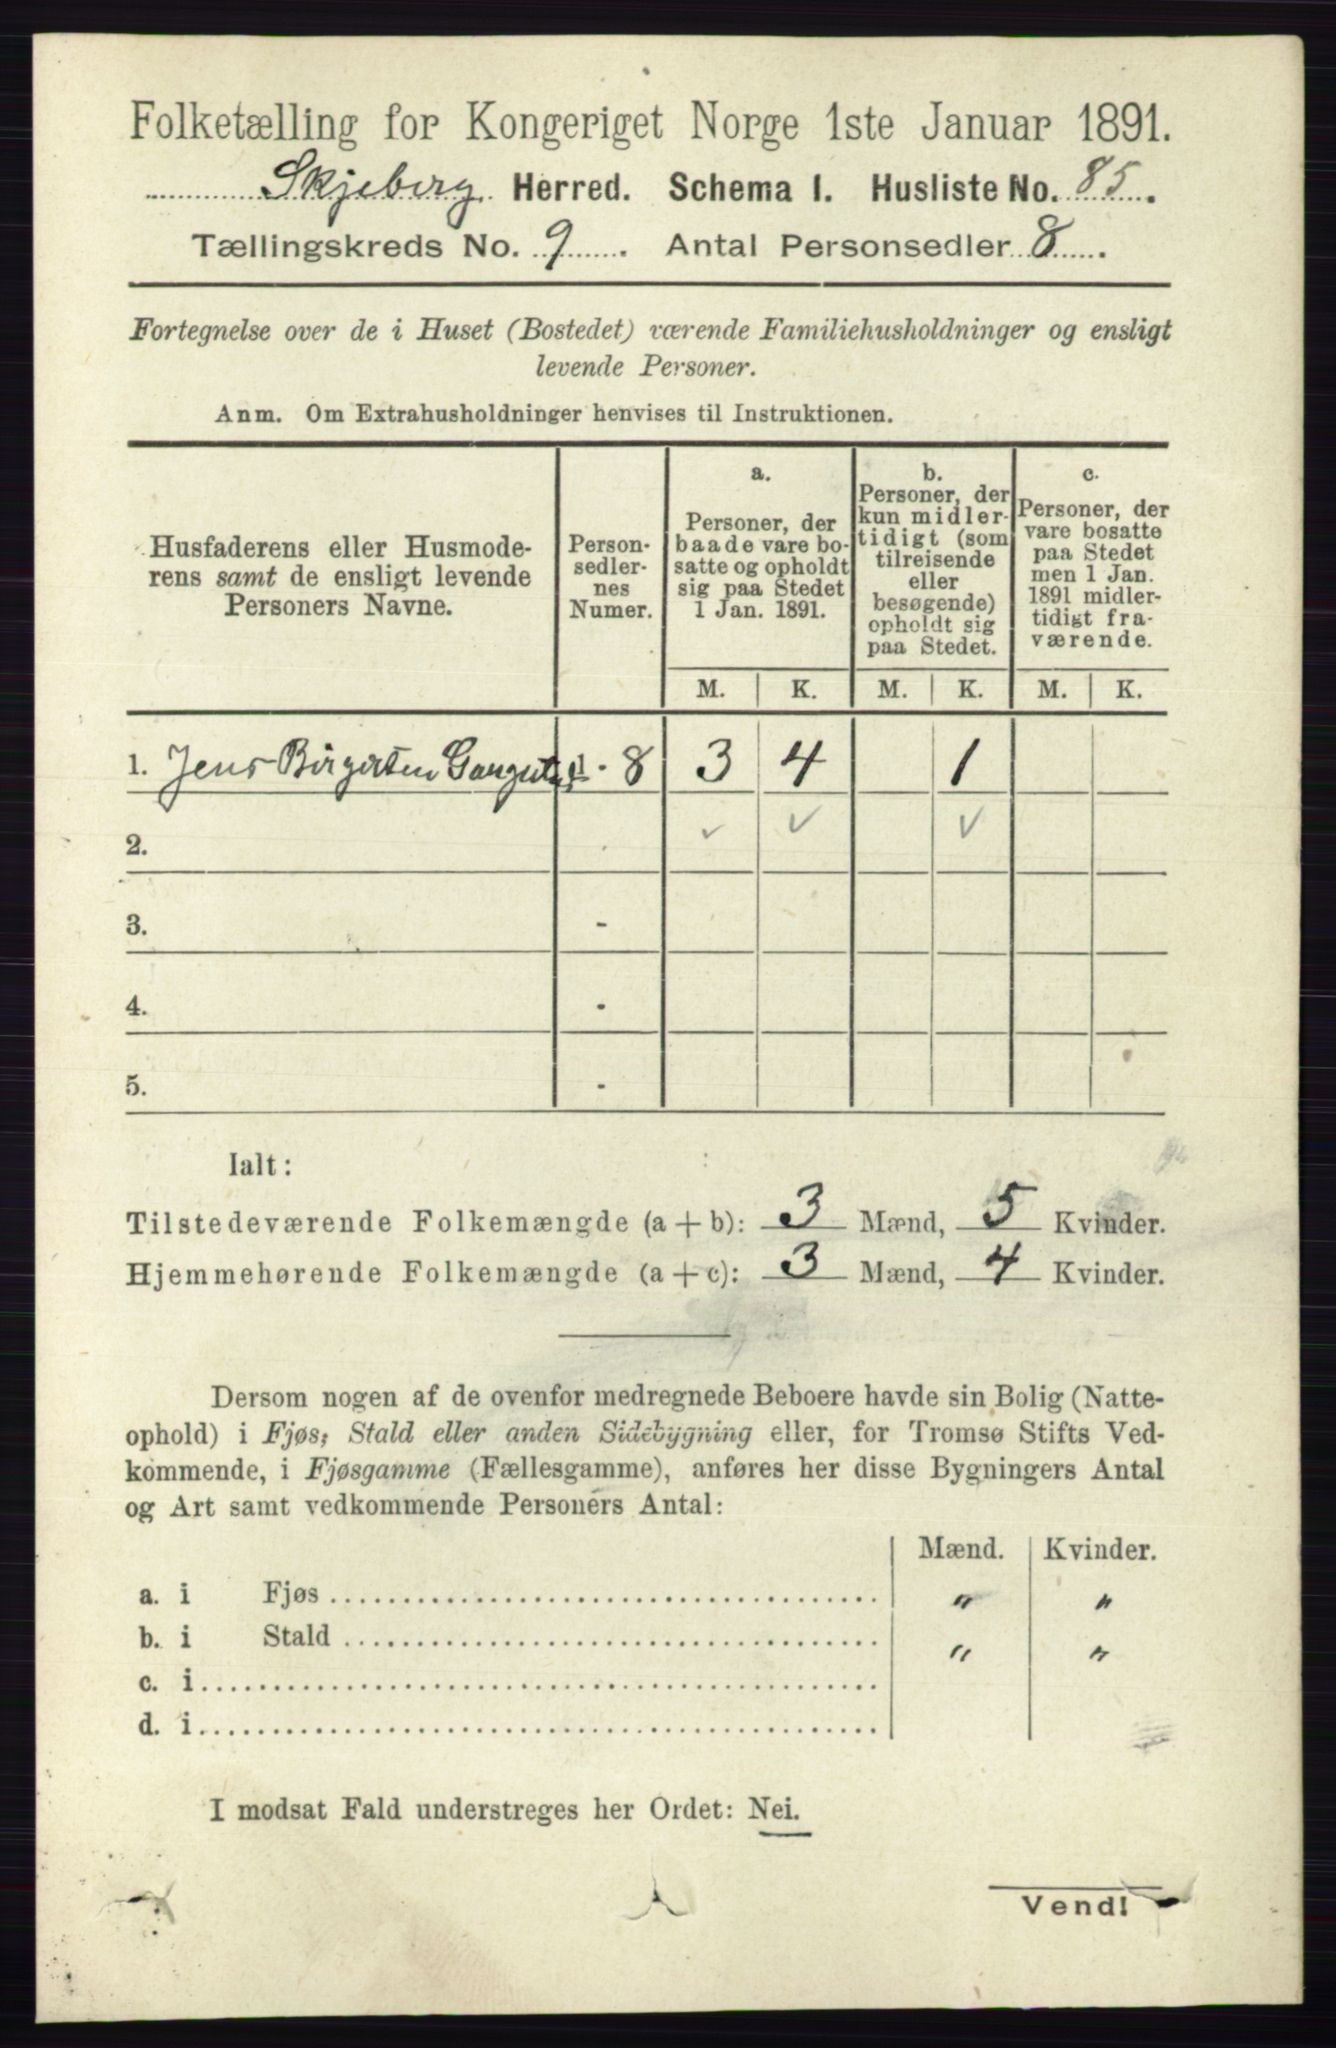 Folketælling for Kongeriget Norge 1ste Januar 1891.
Skjeberg Herred. Schema I. Husliste No. 85.
Tællingskreds No. 9. Antal Personsedler 8.
Fortegnelse over de i Huset (Bostedet) værende Familiehusholdninger og ensligt
levende Personer.
Anm. Om Extrahusholdninger henvises til Instruktionen.
Husfaderens eller Husmode-
rens samt de ensligt levende
Personers Navne.
Person-
sedler-
nes
Numer.
a.
Personer, der
baade vare bo-
satte og opholdt
sig paa Stedet
1 Jan. 1891.
b.
Personer, der
kun midler-
tidigt (som
tilreisende
eller
besøgende)
opholdt sig
paa Stedet.
c.
Personer, der
vare bosatte
paa Stedet
men 1 Jan.
1891 midler-
tidigt fra-
værende.
M. K. M. K. M. K.
1. Jens 1 - 8 3 4 1
2.
3. -
4. -
5. -
Ialt:
Tilstedeværende Folkemængde (a + b): 3 Mænd, 5 Kvinder.
Hjemmehørende Folkemængde (a + c): 3 Mænd, 4 Kvinder.
Dersom nogen af de ovenfor medregnede Beboere havde sin Bolig (Natte-
ophold) i Fjøs, Stald eller anden Sidebygning eller, for Tromsø Stifts Ved-
kommende, i Fjøsgamme (Fællesgamme), anføres her disse Bygningers Antal
og Art samt vedkommende Personers Antal:
Mænd. Kvinder.
a. i Fjøs " "
b. i Stald " "
c. i
d. i
I modsat Fald understreges her Ordet: Nei.
Vend!